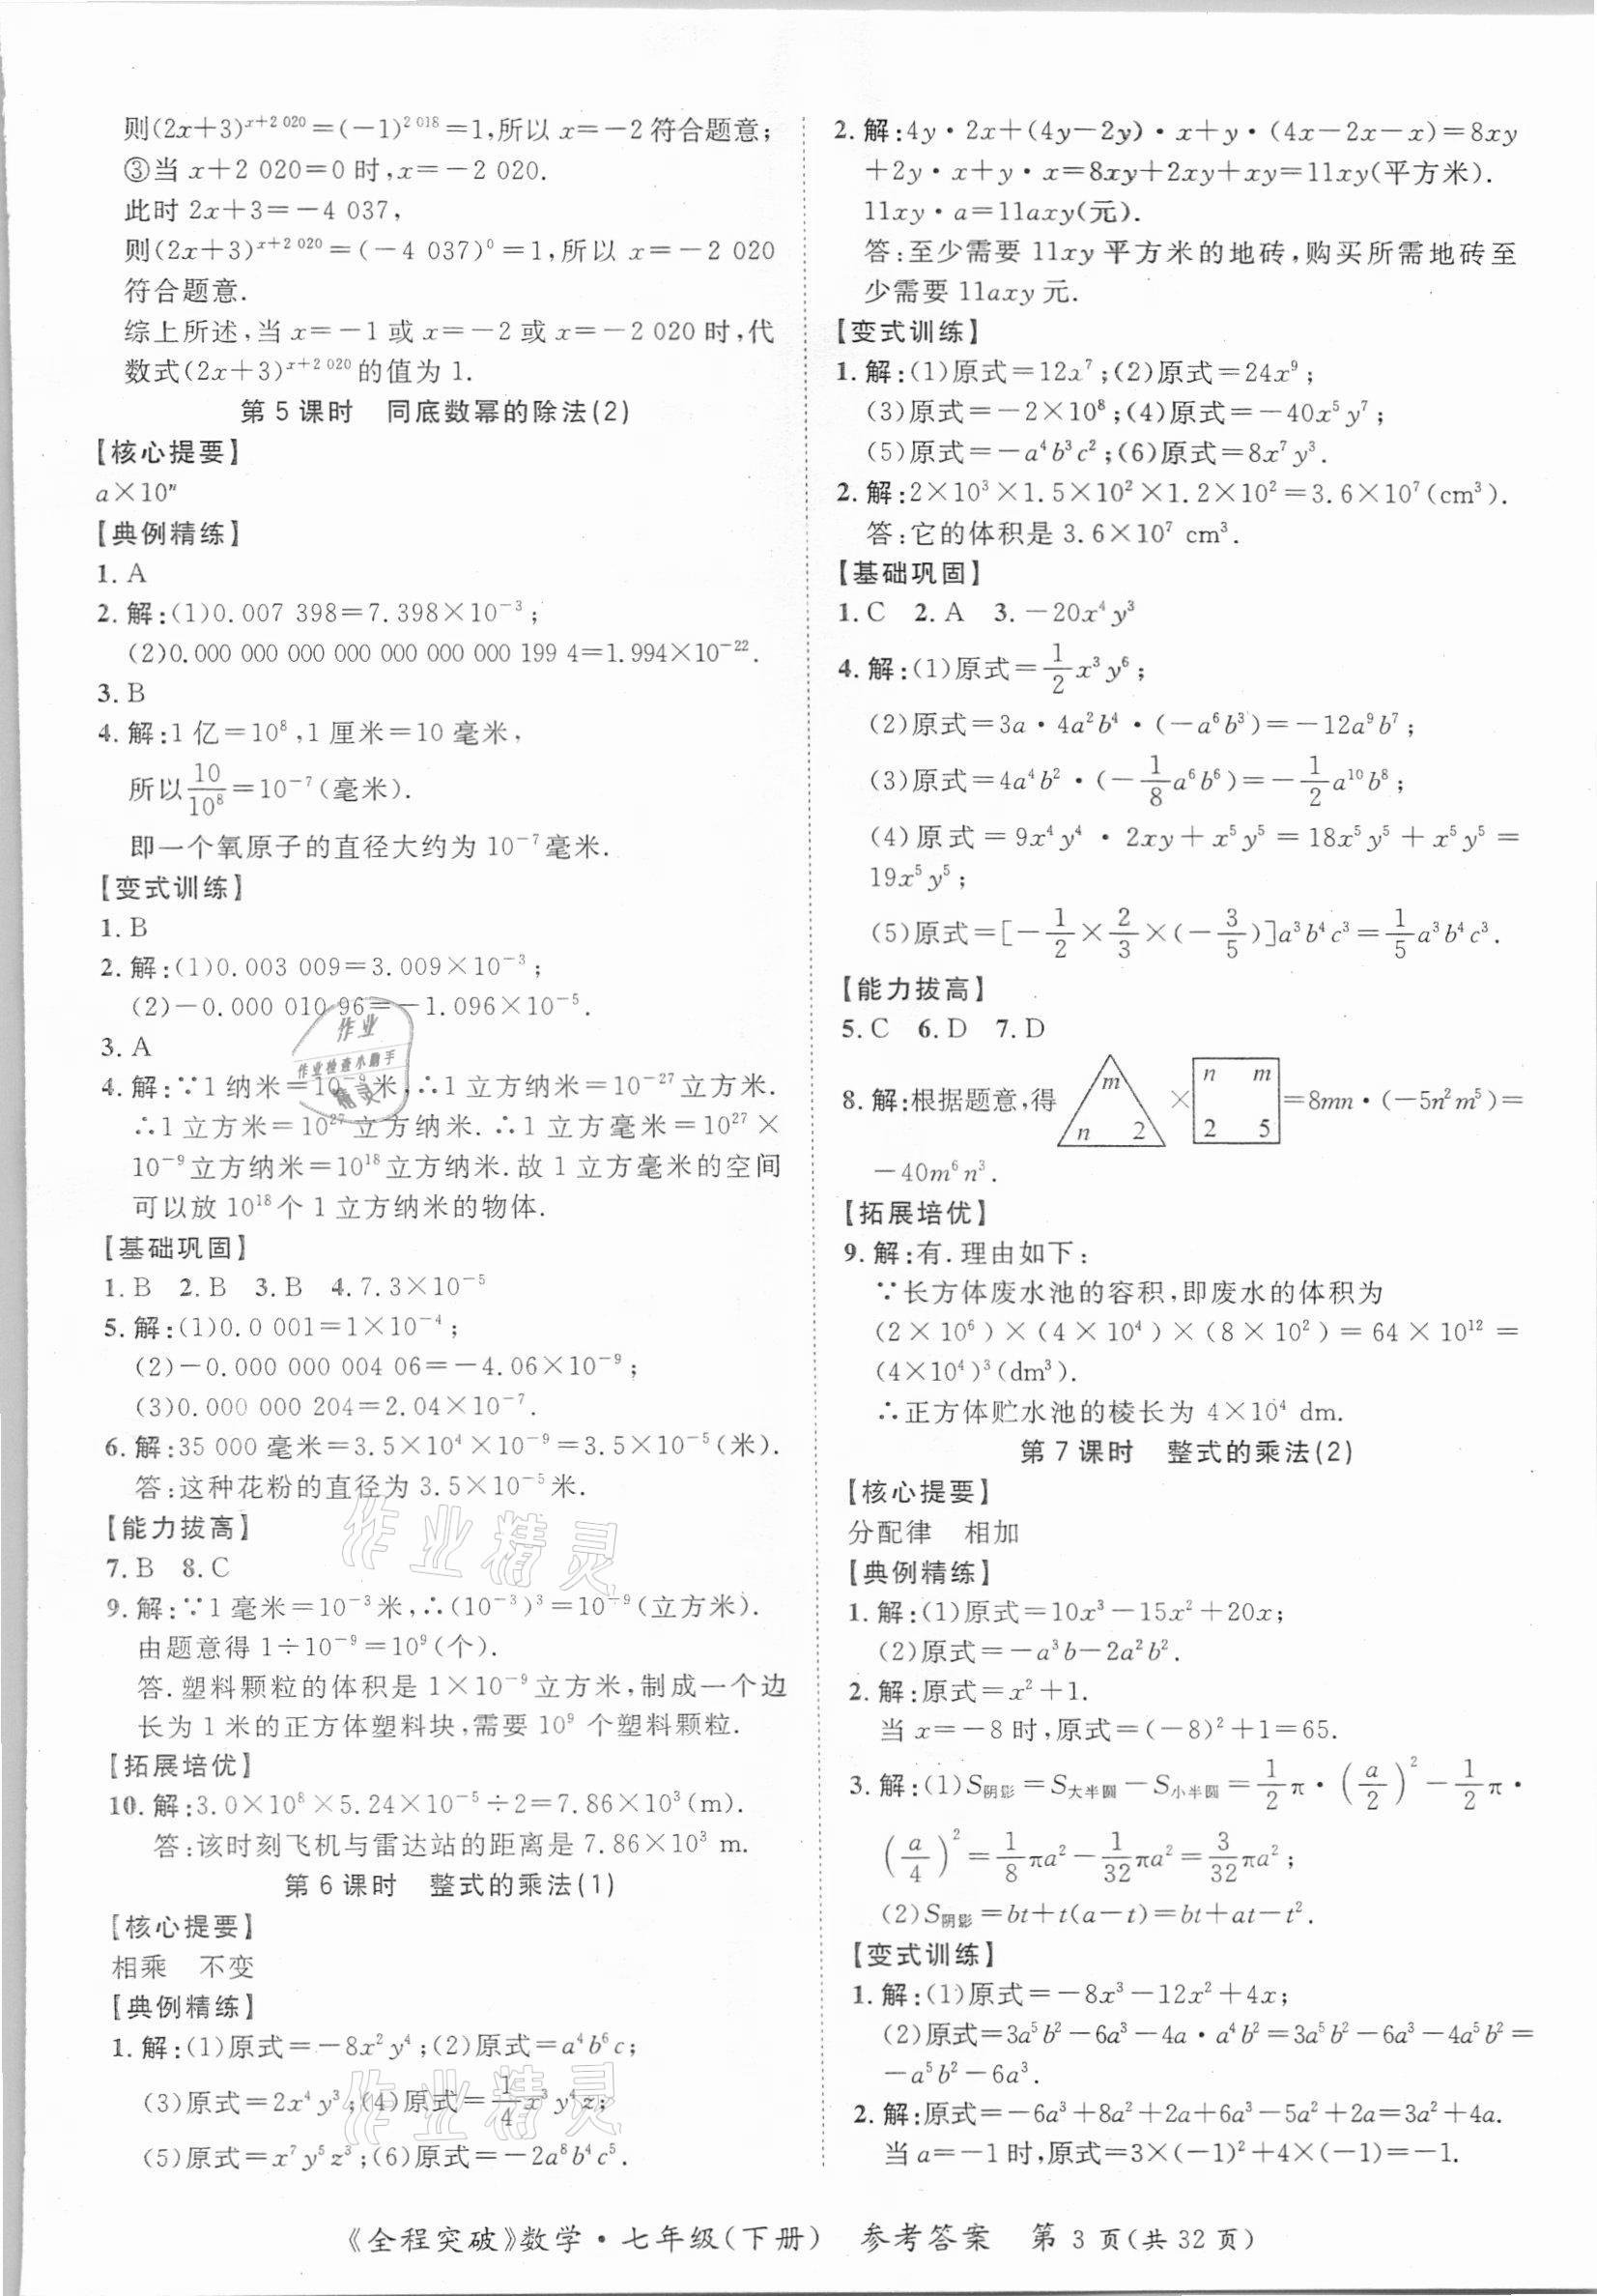 则(2x+3)^{x+2 020}=(-1)^{2 018}=1,所以 x=-2 符合题意;
③当 x+2 020=0 时,x=-2 020.
此时 2x+3=-4 037,
则(2x+3)^{x+2 020}=(-4 037)^0=1,所以 x=-2 020
符合题意.
综上所述,当 x=-1 或 x=-2 或 x=-2 020 时,代
数式(2x+3)^{x+2 020}的值为 1.
第 5 课时 同底数幂的除法(2)
【核心提要】
a×10^n
【典例精练】
1. A
2. 解:(1)0.007 398=7.398×10^{-3};
(2)0.000 000 000 000 000 000 000 199 4=1.994×10^{-22}.
3. B
4. 解:1 亿=10^8,1 厘米=10 毫米,
所以\frac{10}{10^8}=10^{-7}(毫米).
即一个氧原子的直径大约为 10^{-7}毫米.
【变式训练】
1. B
2. 解:(1)0.003 009=3.009×10^{-3};
(2)-0.000 010 96=-1.096×10^{-5}.
3. A
4. 解:∵1 纳米=10^{-9}米,∴1 立方纳米=10^{-27}立方米.
∴1 立方米=10^{27}立方纳米.∴1 立方毫米=10^{27}×
10^{-9}立方纳米=10^{18}立方纳米.故 1 立方毫米的空间
可以放 10^{18}个 1 立方纳米的物体.
【基础巩固】
1. B 2. B 3. B 4. 7.3×10^{-5}
5. 解:(1)0.0 001=1×10^{-4};
(2)-0.000 000 004 06=-4.06×10^{-9};
(3)0.000 000 204=2.04×10^{-7}.
6. 解:35 000 毫米=3.5×10^4×10^{-9}=3.5×10^{-5}(米).
答:这种花粉的直径为 3.5×10^{-5}米.
【能力拔高】
7. B 8. C
9. 解:∵1 毫米=10^{-3}米,∴(10^{-3})^3=10^{-9}(立方米).
由题意得 1÷10^{-9}=10^9(个).
答.塑料颗粒的体积是 1×10^{-9}立方米,制成一个边
长为 1 米的正方体塑料块,需要 10^9 个塑料颗粒.
【拓展培优】
10. 解:3.0×10^8×5.24×10^{-5}÷2=7.86×10^3(m).
答:该时刻飞机与雷达站的距离是 7.86×10^3 m.
第 6 课时 整式的乘法(1)
【核心提要】
相乘 不变
【典例精练】
1. 解:(1)原式=-8x^2y^4;(2)原式=a^4b^6c;
(3)原式=2x^4y^3;(4)原式=\frac{1}{4}x^3y^4z;
(5)原式=x^7y^5z^3;(6)原式=-2a^8b^4c^5.
2. 解:4y·2x+(4y-2y)·x+y·(4x-2x-x)=8xy
+2y·x+y·x=8xy+2xy+xy=11xy(平方米).
11xy·a=11axy(元).
答:至少需要 11xy 平方米的地砖,购买所需地砖至
少需要 11axy 元.
【变式训练】
1. 解:(1)原式=12x^7;(2)原式=24x^9;
(3)原式=-2×10^8;(4)原式=-40x^5y^7;
(5)原式=-a^4b^3c^2;(6)原式=8x^7y^3.
2. 解:2×10^3×1.5×10^2×1.2×10^2=3.6×10^7(cm^3).
答:它的体积是 3.6×10^7 cm^3.
【基础巩固】
1. C 2. A 3. -20x^4y^3
4. 解:(1)原式=\frac{1}{2}x^3y^6;
(2)原式=3a·4a^2b^4·(-a^6b^3)=-12a^9b^7;
(3)原式=4a^4b^2·(-\frac{1}{8}a^6b^6)=-\frac{1}{2}a^{10}b^8;
(4)原式=9x^4y^4·2xy+x^5y^5=18x^5y^5+x^5y^5=
19x^5y^5;
(5)原式=[-\frac{1}{2}×\frac{2}{3}×(-\frac{3}{5})]a^3b^4c^3=\frac{1}{5}a^3b^4c^3.
【能力拔高】
5. C 6. D 7. D
8. 解:根据题意,得 m n 2 × n m 2 5 =8mn·(-5n^2m^5)=
-40m^6n^3.
【拓展培优】
9. 解:有.理由如下:
∵长方体废水池的容积,即废水的体积为
(2×10^6)×(4×10^4)×(8×10^2)=64×10^{12}=
(4×10^4)^3(dm^3).
∴正方体贮水池的棱长为 4×10^4 dm.
第 7 课时 整式的乘法(2)
【核心提要】
分配律 相加
【典例精练】
1. 解:(1)原式=10x^3-15x^2+20x;
(2)原式=-a^3b-2a^2b^2.
2. 解:原式=x^2+1.
当 x=-8 时,原式=(-8)^2+1=65.
3. 解:(1)S_{阴影}=S_{大半圆}-S_{小半圆}=\frac{1}{2}π·(\frac{a}{2})^2-\frac{1}{2}π·
(\frac{a}{4})^2=\frac{1}{8}πa^2-\frac{1}{32}πa^2=\frac{3}{32}πa^2;
(2)S_{阴影}=bt+t(a-t)=bt+at-t^2.
【变式训练】
1. 解:(1)原式=-8x^3-12x^2+4x;
(2)原式=3a^5b^2-6a^3-4a·a^4b^2=3a^5b^2-6a^3-4a^5b^2=
-a^5b^2-6a^3.
2. 解:原式=-6a^3+8a^2+2a+6a^3-5a^2+2a=3a^2+4a.
当 a=-1 时,原式=3×(-1)^2+4×(-1)=-1.
《全程突破》数学·七年级(下册) 参考答案 第 3 页(共 32 页)
作业
作业检查小助手
精灵
作业精灵
作业精灵